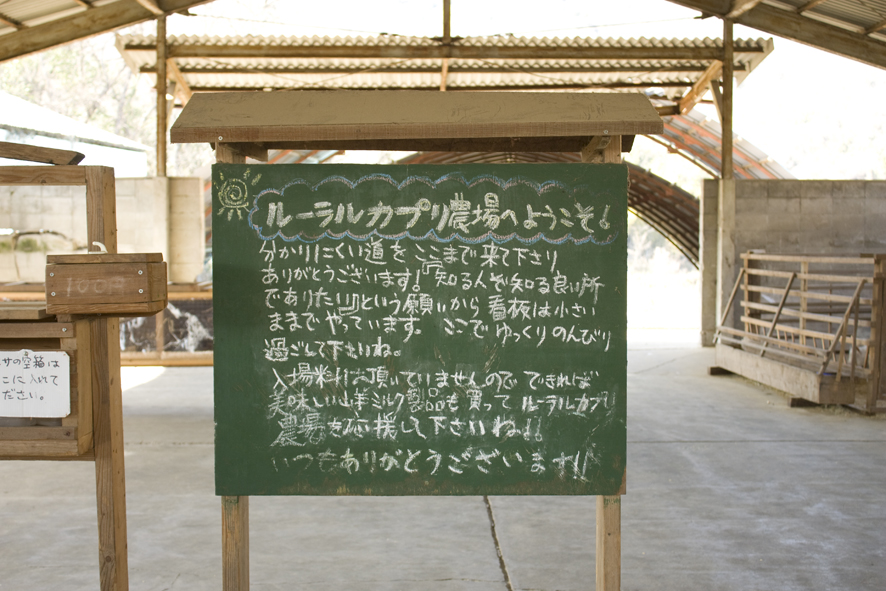 ルーラルカプリ農場へようこそ!
分かりにくい道をここまで来て下さり
ありがとうございます!『知る人ぞ知る良い所
でありたい!』という願いから看板は小さい
ままでやっています。ここでゆっくりのんびり
過ごして下さいね。
入場料は頂いていませんので できれば
美味しい山羊ミルク製品も買って ルーラルカプリ
農場を応援して下さいね!!
いつもありがとうございます!!
100円
サの空箱は
こに入れて
ださい。